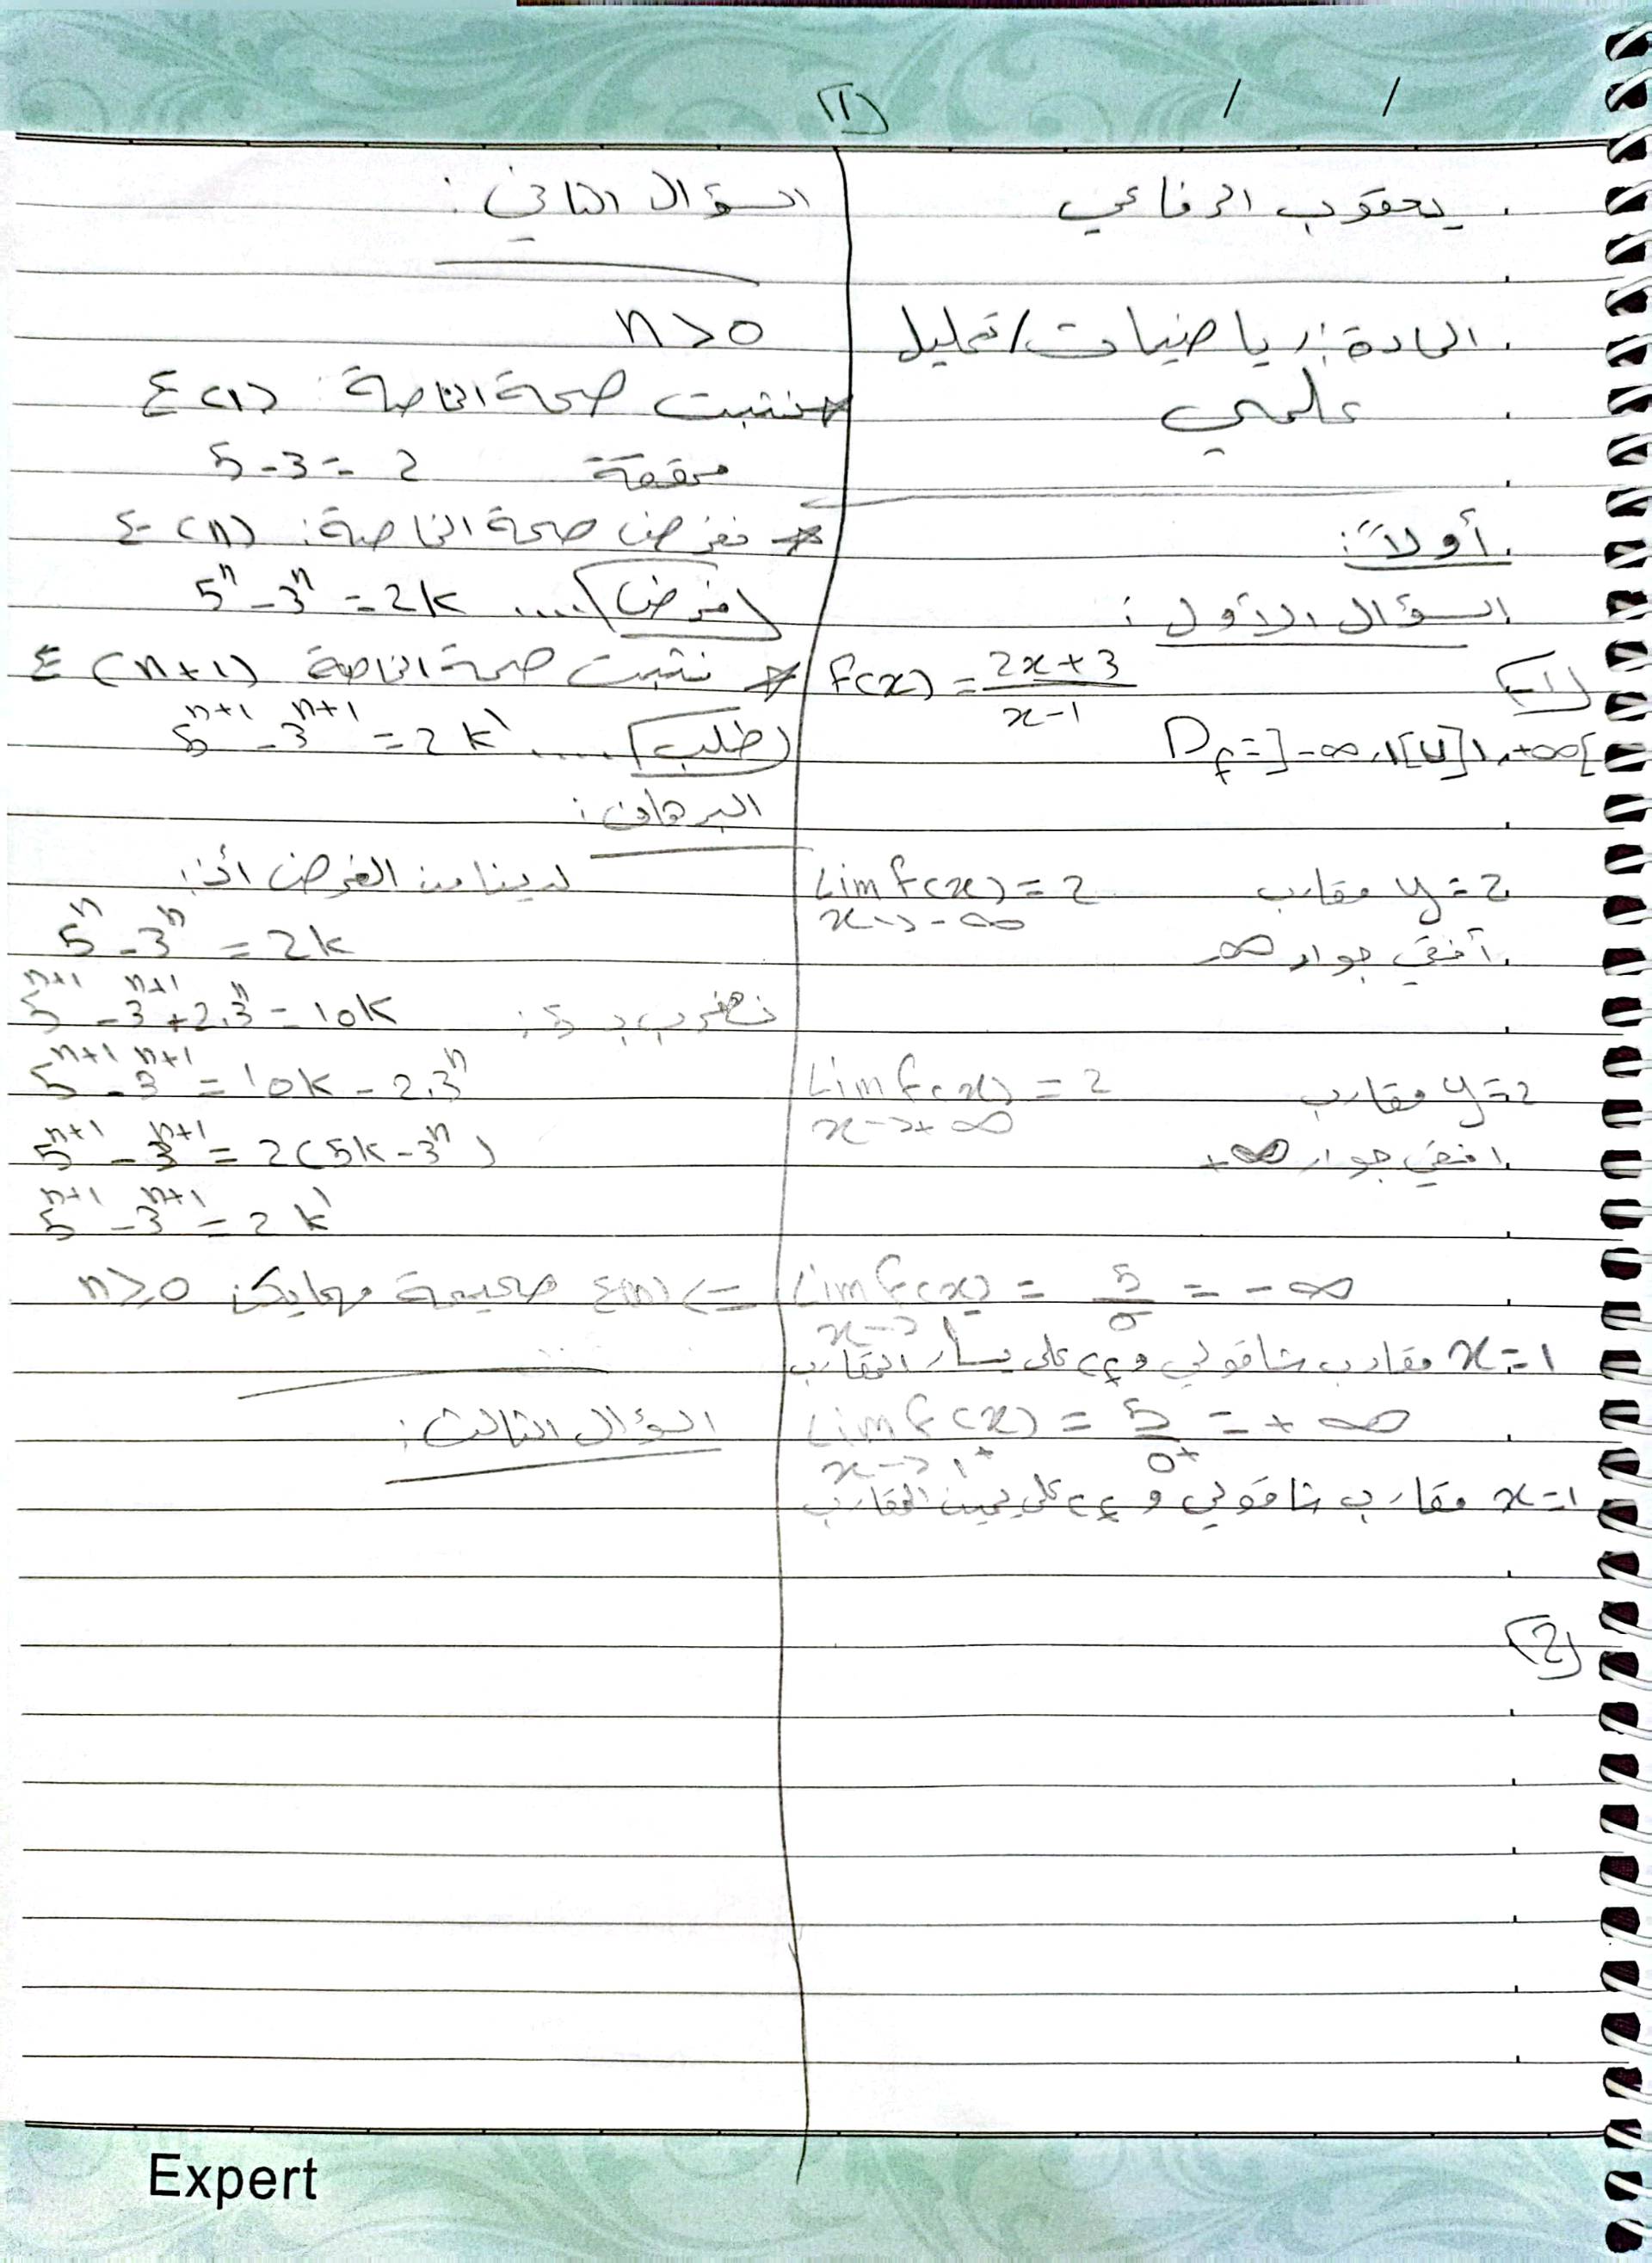 (1)
/ /
يعقوب الرفاعي
المادة: رياضيات / تحليل
علمي
أولاً:
السؤال الأول:
1-
f(x) = \frac{2x+3}{x-1}
D_f = ]-∞, 1[ U ]1, +∞[
Lim f(x) = 2 y = 2 مقارب
x→-∞ أفقي جوار -∞
Lim f(x) = 2 y = 2 مقارب
x→+∞ افقي جوار +∞
Lim f(x) = \frac{5}{0^-} = -∞
x→1^-
x = 1 مقارب شاقولي و C_f على يسار المقارب
Lim f(x) = \frac{5}{0^+} = +∞
x→1^+
x = 1 مقارب شاقولي و C_f على يمين المقارب
(2)
السؤال الثاني:
n > 0
* نثبت صحة الخاصة: E(1)
5 - 3 = 2 محققة
* نفرض صحة الخاصة: E(n)
5^n - 3^n = 2k .... فرض
* نثبت صحة الخاصة E(n+1)
5^{n+1} - 3^{n+1} = 2k' .... طلب
البرهان:
لدينا من الفرض أن:
5^n - 3^n = 2k
نضرب بـ 5: 5^{n+1} - 3^{n+1} + 2.3^n = 10k
5^{n+1} - 3^{n+1} = 10k - 2.3^n
5^{n+1} - 3^{n+1} = 2(5k - 3^n)
5^{n+1} - 3^{n+1} = 2k'
<= E(n) صحيحة مهما يكن n ≥ 0
السؤال الثالث:
Expert